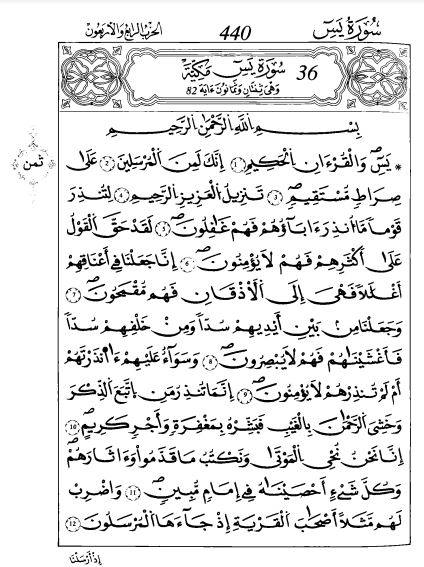 سُورَةُ يَسٓ 440 الحِزْبُ الرَّابِعُ وَالاَرْبَعُونَ
36 سُورَةُ يَسٓ مَكِّيَّةٌ
وَهْيَ ثِنْتَانِ وَثَمَانُونَ ءَايَةً 82
بِسْمِ اِللَّهِ اِلرَّحْمَٰنِ اِلرَّحِيمِ
* يَسٓ وَالْقُرْءَانِ اِلْحَكِيمِ ① إِنَّكَ لَمِنَ اَلْمُرْسَلِينَ ② عَلَىٰ
ثمن
صِرَاطٖ مُّسْتَقِيمٖ ③ تَنزِيلُ اَلْعَزِيزِ اِلرَّحِيمِ ④ لِتُنذِرَ
قَوْماٗ مَّا أُنذِرَ ءَابَآؤُهُمْ فَهُمْ غَٰفِلُونَ ⑤ لَقَدْ حَقَّ اَلْقَوْلُ
عَلَىٰٓ أَكْثَرِهِمْ فَهُمْ لَا يُؤْمِنُونَ ⑥ إِنَّا جَعَلْنَا فِےٓ أَعْنَٰقِهِمُۥٓ
أَغْلَٰلاٗ فَهِيَ إِلَى اَلْأَذْقَانِ فَهُم مُّقْمَحُونَ ⑦
وَجَعَلْنَا مِنۢ بَيْنِ أَيْدِيهِمْ سُدّاٗ وَمِنْ خَلْفِهِمْ سُدّاٗ
فَأَغْشَيْنَٰهُمْ فَهُمْ لَا يُبْصِرُونَ ⑧ وَسَوَآءٌ عَلَيْهِمُۥٓ ءَآنذَرْتَهُمُۥٓ
أَمْ لَمْ تُنذِرْهُمْ لَا يُؤْمِنُونَ ⑨ إِنَّمَا تُنذِرُ مَنِ اِتَّبَعَ اَلذِّكْرَ
وَخَشِيَ اَلرَّحْمَٰنَ بِالْغَيْبِ فَبَشِّرْهُ بِمَغْفِرَةٖ وَأَجْرٖ كَرِيمٖ ⑩
اِنَّا نَحْنُ نُحْيِ اِلْمَوْتَىٰ وَنَكْتُبُ مَا قَدَّمُواْ وَءَاثَٰرَهُمْ
وَكُلَّ شَےْءٍ أَحْصَيْنَٰهُ فِےٓ إِمَامٖ مُّبِينٖ ⑪ وَاضْرِبْ
لَهُم مَّثَلاً أَصْحَٰبَ اَلْقَرْيَةِ إِذْ جَآءَهَا اَلْمُرْسَلُونَ ⑫
إِذَ اَرْسَلْنَا